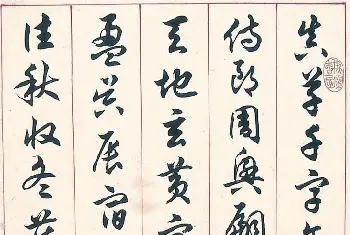 真草千字文
侍郎周興嗣
天地玄黃宇
盈昃辰宿
往秋收冬藏